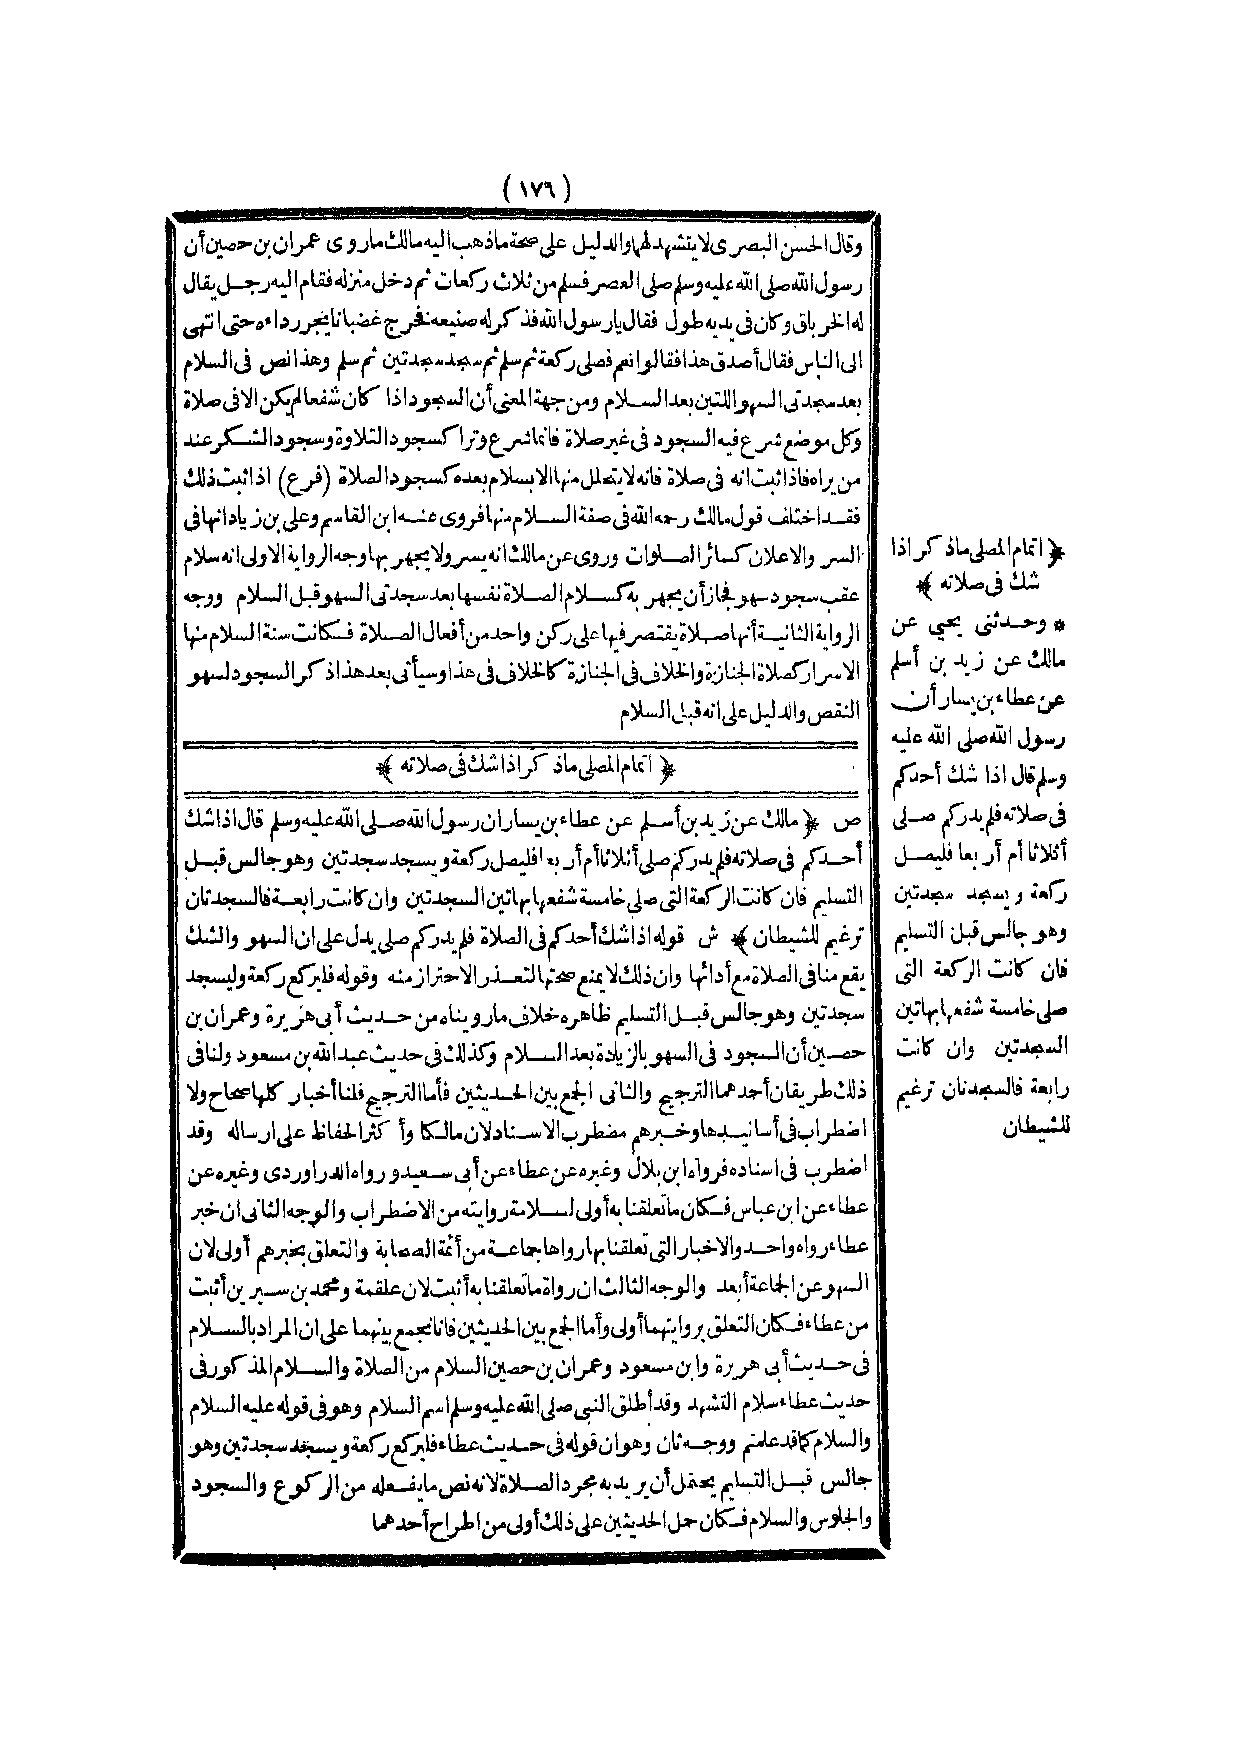 (١٧٦)
وقال الحسن البصرى لا يتشهد لهما والدليل على صحة ماذهب اليه مالك ماروى عمران بن حصين أن
رسول الله صلى الله عليه وسلم صلى العصر فسلم من ثلاث ركعات ثم دخل منزله فقام اليه رجل يقال
له الخرباق وكان فى يديه طول فقال يارسول الله فذكر له صنيعه فخرج غضبانا يجر رداءه حتى انتهى
الى الناس فقال أصدق هذا فقالوا نعم فصلى ركعة ثم سلم ثم سجد سجدتين ثم سلم وهذا نص فى السلام
بعد سجدتى السهو اللتين بعد السلام ومن جهة المعنى أن السجود اذا كان شفعا لم يكن الا فى صلاة
وكل موضع شرع فيه السجود فى غير صلاة فانما شرع وترا كسجود التلاوة وسجود الشكر عند
من يراه فاذا ثبت انه فى صلاة فانه لا يتحلل منها الا بسلام بعده كسجود الصلاة (فرع) اذا ثبت ذلك
فقد اختلف قول مالك رحمه الله فى صفة السلام منها فروى عنه ابن القاسم وعلى بن زياد انها فى
السر والاعلان كسائر الصلوات وروى عن مالك انه يسر ولا يجهر بها وجه الرواية الاولى انه سلام
عقب سجود سهو فجاز أن يجهر به كسلام الصلاة نفسها بعد سجدتى السهو قبل السلام ووجه
الرواية الثانية أنها صلاة يقتصر فيها على ركن واحد من أفعال الصلاة فكانت سنة السلام منها
الاسرار كصلاة الجنازة والخلاف فى الجنازة كالخلاف فى هذا وسيأتى بعد هذا ذكر السجود لسهو
النقص والدليل على انه قبل السلام
﴿ اتمام المصلى ماذكر اذا شك فى صلاته ﴾
ص ﴿ مالك عن زيد بن أسلم عن عطاء بن يسار ان رسول الله صلى الله عليه وسلم قال اذا شك
أحدكم فى صلاته فلم يدركم صلى أثلاثا أم أربعا فليصل ركعة ويسجد سجدتين وهو جالس قبل
التسليم فان كانت الركعة التى صلى خامسة شفعها بهاتين السجدتين وان كانت رابعة فالسجدتان
ترغيم للشيطان ﴾ ش قوله اذا شك أحدكم فى الصلاة فلم يدركم صلى يدل على ان السهو والشك
يقع منا فى الصلاة مع أدائها وان ذلك لا يمنع صحتها لتعذر الاحتراز منه وقوله فليركع ركعة وليسجد
سجدتين وهو جالس قبل التسليم ظاهره خلاف مارويناه من حديث أبى هريرة وعمران بن
حصين أن السجود فى السهو بالزيادة بعد السلام وكذلك فى حديث عبد الله بن مسعود ولنا فى
ذلك طريقان أحدهما الترجيح والثانى الجمع بين الحديثين فأما الترجيح فلنا أخبار كلها صحاح ولا
اضطراب فى أسانيدها وخبرهم مضطرب الاسناد لان مالكا وأكثر الحفاظ على ارساله وقد
اضطرب فى اسناده فرواه ابن بلال وغيره عن عطاء عن أبى سعيد ورواه الدراوردى وغيره عن
عطاء عن ابن عباس فكان ما تعلقنا به أولى لسلامة روايته من الاضطراب والوجه الثانى ان خبر
عطاء رواه واحد والاخبار التى تعلقنا بها رواها جماعة من أئمة الصحابة والتعلق بخبرهم أولى لان
السهو عن الجماعة أبعد والوجه الثالث ان رواة ما تعلقنا به أثبت لان علقمة ومحمد بن سيرين أثبت
من عطاء فكان التعلق بروايتهما أولى وأما الجمع بين الحديثين فانا نجمع بينهما على ان المراد بالسلام
فى حديث أبى هريرة وابن مسعود وعمران بن حصين السلام من الصلاة والسلام المذكور فى
حديث عطاء سلام التشهد وقد أطلق النبى صلى الله عليه وسلم اسم السلام وهو فى قوله عليه السلام
والسلام كما قد علمتم ووجه ثان وهو ان قوله فى حديث عطاء فليركع ركعة ويسجد سجدتين وهو
جالس قبل التسليم يحتمل أن يريد به مجرد الصلاة لانه نص ما يفعله من الركوع والسجود
والجلوس والسلام فكان حمل الحديثين على ذلك أولى من اطراح أحدهما
﴿ اتمام المصلى ماذكر اذا
شك فى صلاته ﴾
* وحدثنى يحيى عن
مالك عن زيد بن أسلم
عن عطاء بن يسار أن
رسول الله صلى الله عليه
وسلم قال اذا شك أحدكم
فى صلاته فلم يدركم صلى
أثلاثا أم أربعا فليصل
ركعة ويسجد سجدتين
وهو جالس قبل التسليم
فان كانت الركعة التى
صلى خامسة شفعها بهاتين
السجدتين وان كانت
رابعة فالسجدتان ترغيم
للشيطان